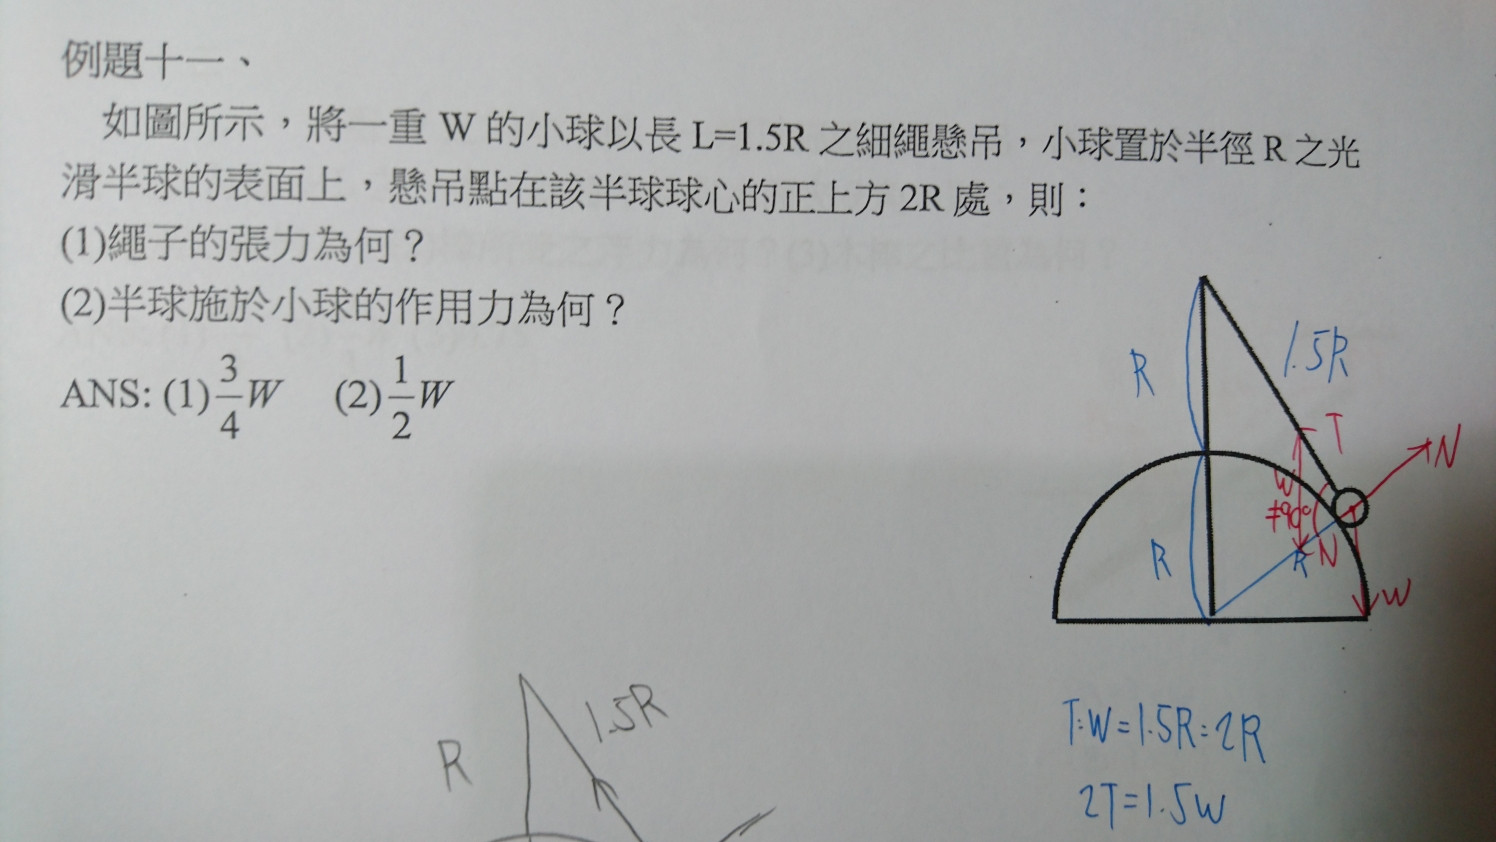 例題十一、
如圖所示，將一重 W 的小球以長 L=1.5R 之細繩懸吊，小球置於半徑 R 之光
滑半球的表面上，懸吊點在該半球球心的正上方 2R 處，則：
(1)繩子的張力為何？
(2)半球施於小球的作用力為何？
ANS: (1) 3/4 W (2) 1/2 W
R
1.5R
T
N
W
≠90°
R
R
N
W
T:W=1.5R:2R
2T=1.5W
R
1.5R